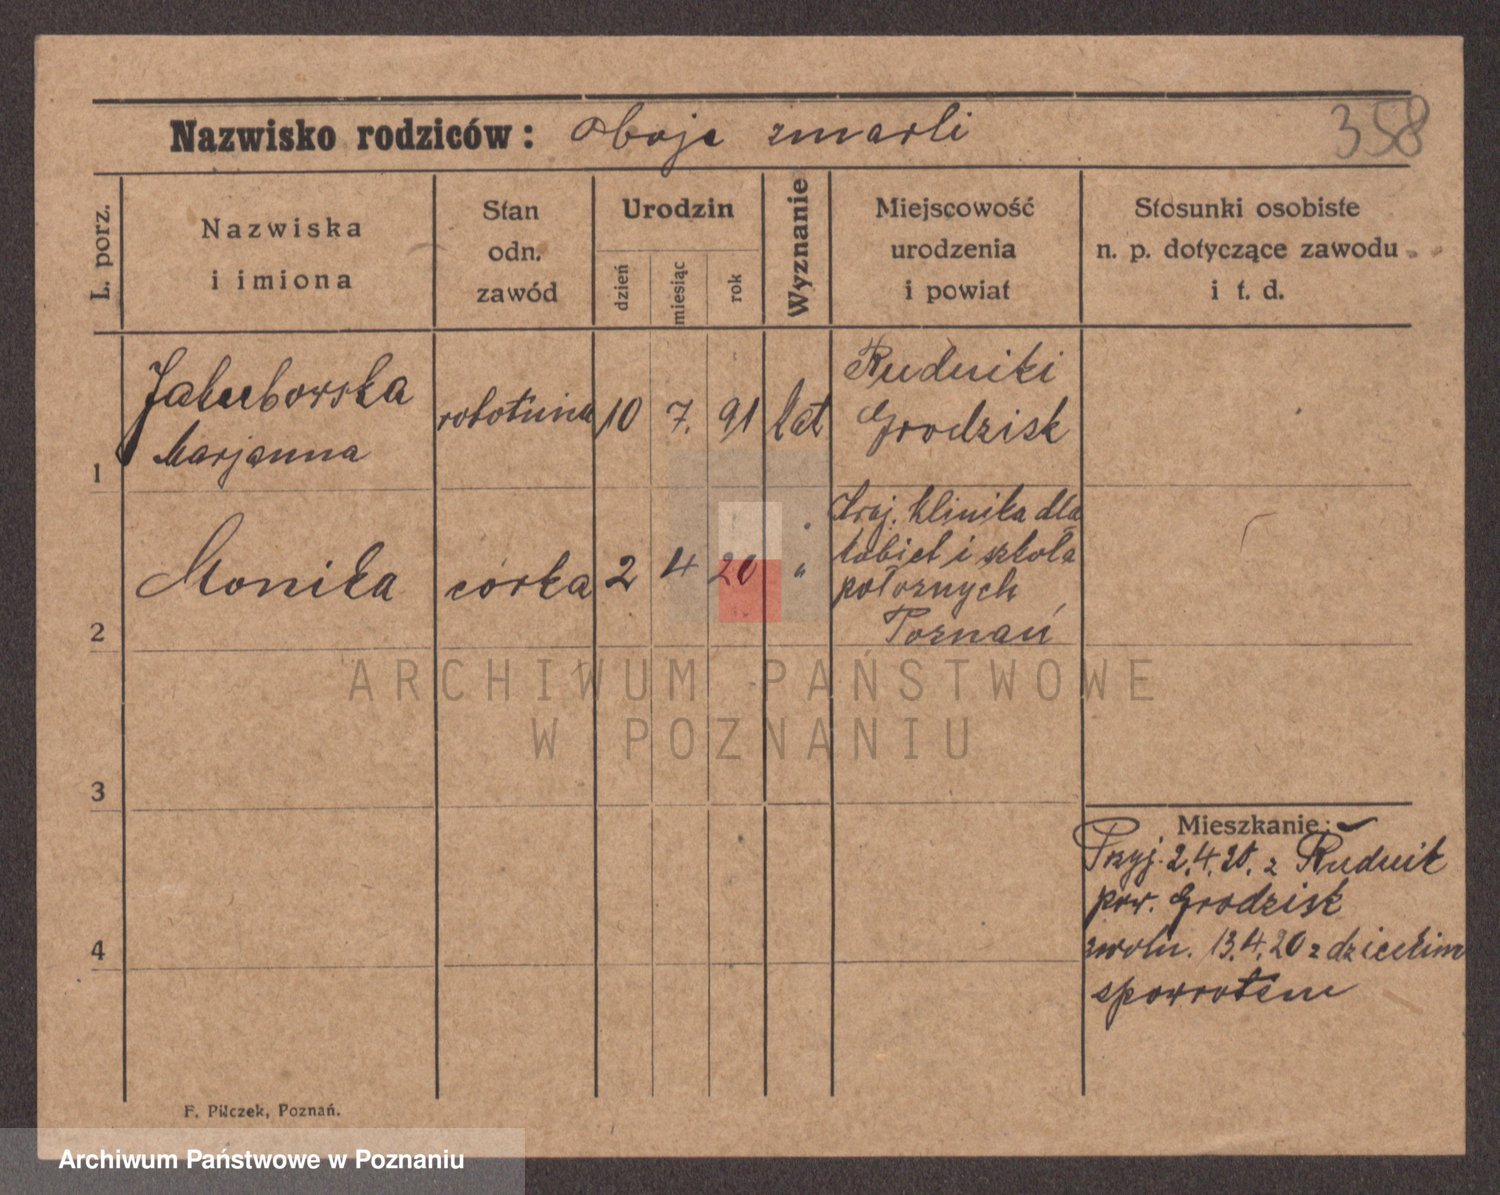 358
Nazwisko rodziców: oboje zmarli
L. porz.
Nazwiska
i imiona
Stan
odn.
zawód
Urodzin
dzień
miesiąc
rok
Wyznanie
Miejscowość
urodzenia
i powiat
Stosunki osobiste
n. p. dotyczące zawodu
i t. d.
1
Jakubowska
Marjanna
robotnica
10 7. 91
kat
Rudniki
Grodzisk
2
Monika
córka
2 4 20
"
Kraj. klinika dla
kobiet i szkoła
położnych
Poznań
3
4
Mieszkanie:
Przyj. 2.4.20. z Rudnik
pow. Grodzisk
zwoln. 13.4.20 z dzieckiem
spowrotem
F. Pilczek, Poznań.
ARCHIWUM PAŃSTWOWE
W POZNANIU
Archiwum Państwowe w Poznaniu